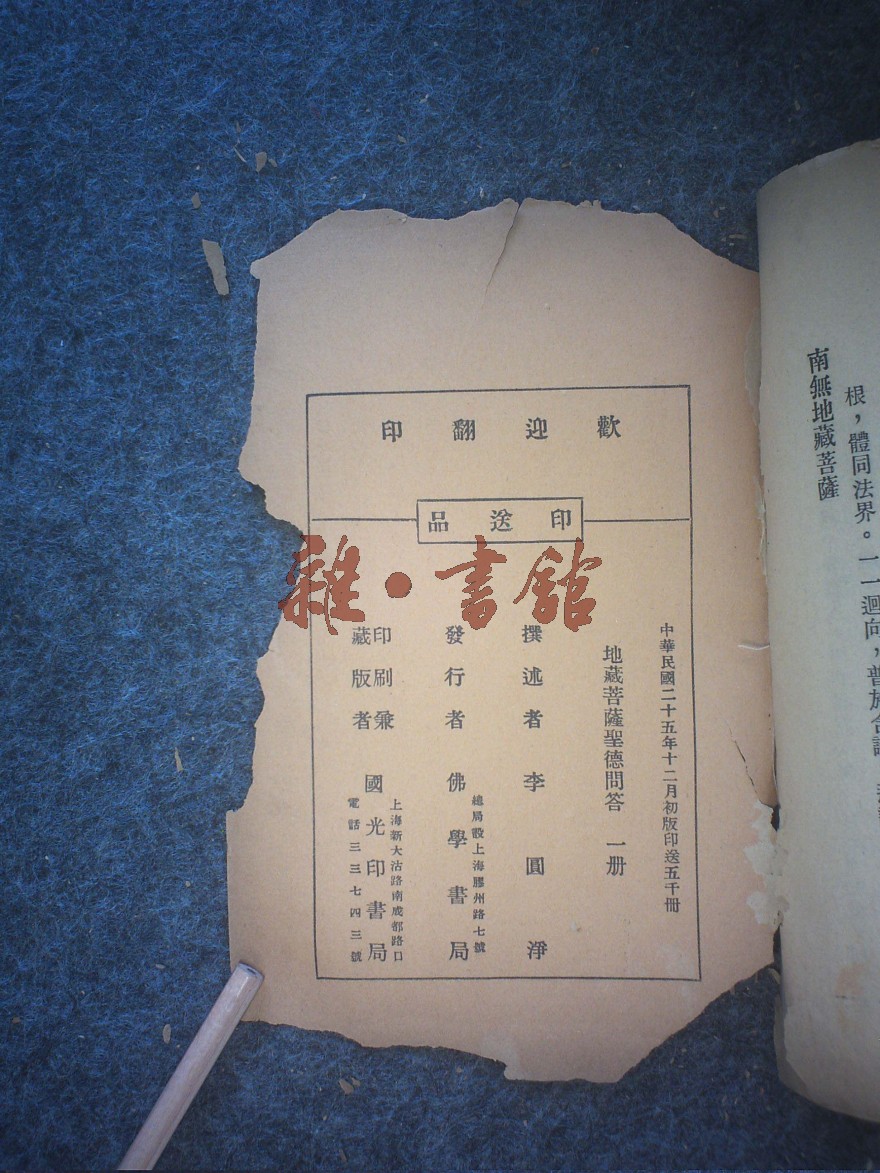 南無地藏菩薩
歡迎翻印
印送品
中華民國二十五年十二月初版印送五千冊
地藏菩薩聖德問答 一册
撰述者 李圓淨
發行者 佛學書局
總局設上海膠州路七號
印刷兼
藏版者
國光印書局
上海新大沽路南成都路口
電話三三七四三號
雜·書館
根，體同法界。一一迴向，普施